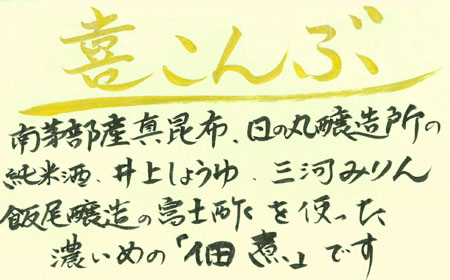 喜こんぶ
南茅部産真昆布、日の丸醸造所の
純米酒、井上しょうゆ、三河みりん
飯尾醸造の富士酢を使った
濃いめの「佃煮」です